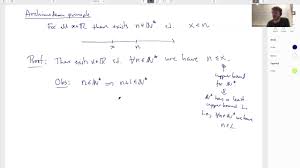 Archimedean principle
For all x∈ℝ there exists n∈ℕ* s.t. x<n.
x n
Proof: There x∈ℝ s.t. ∀n∈ℕ* we have n≤x.
upper bound
for ℕ*
Obs: n∈ℕ* ⇒ n+1∈ℕ*
ℕ* has a least
upper bound L
i.e., ∀n∈ℕ* we have
n≤L